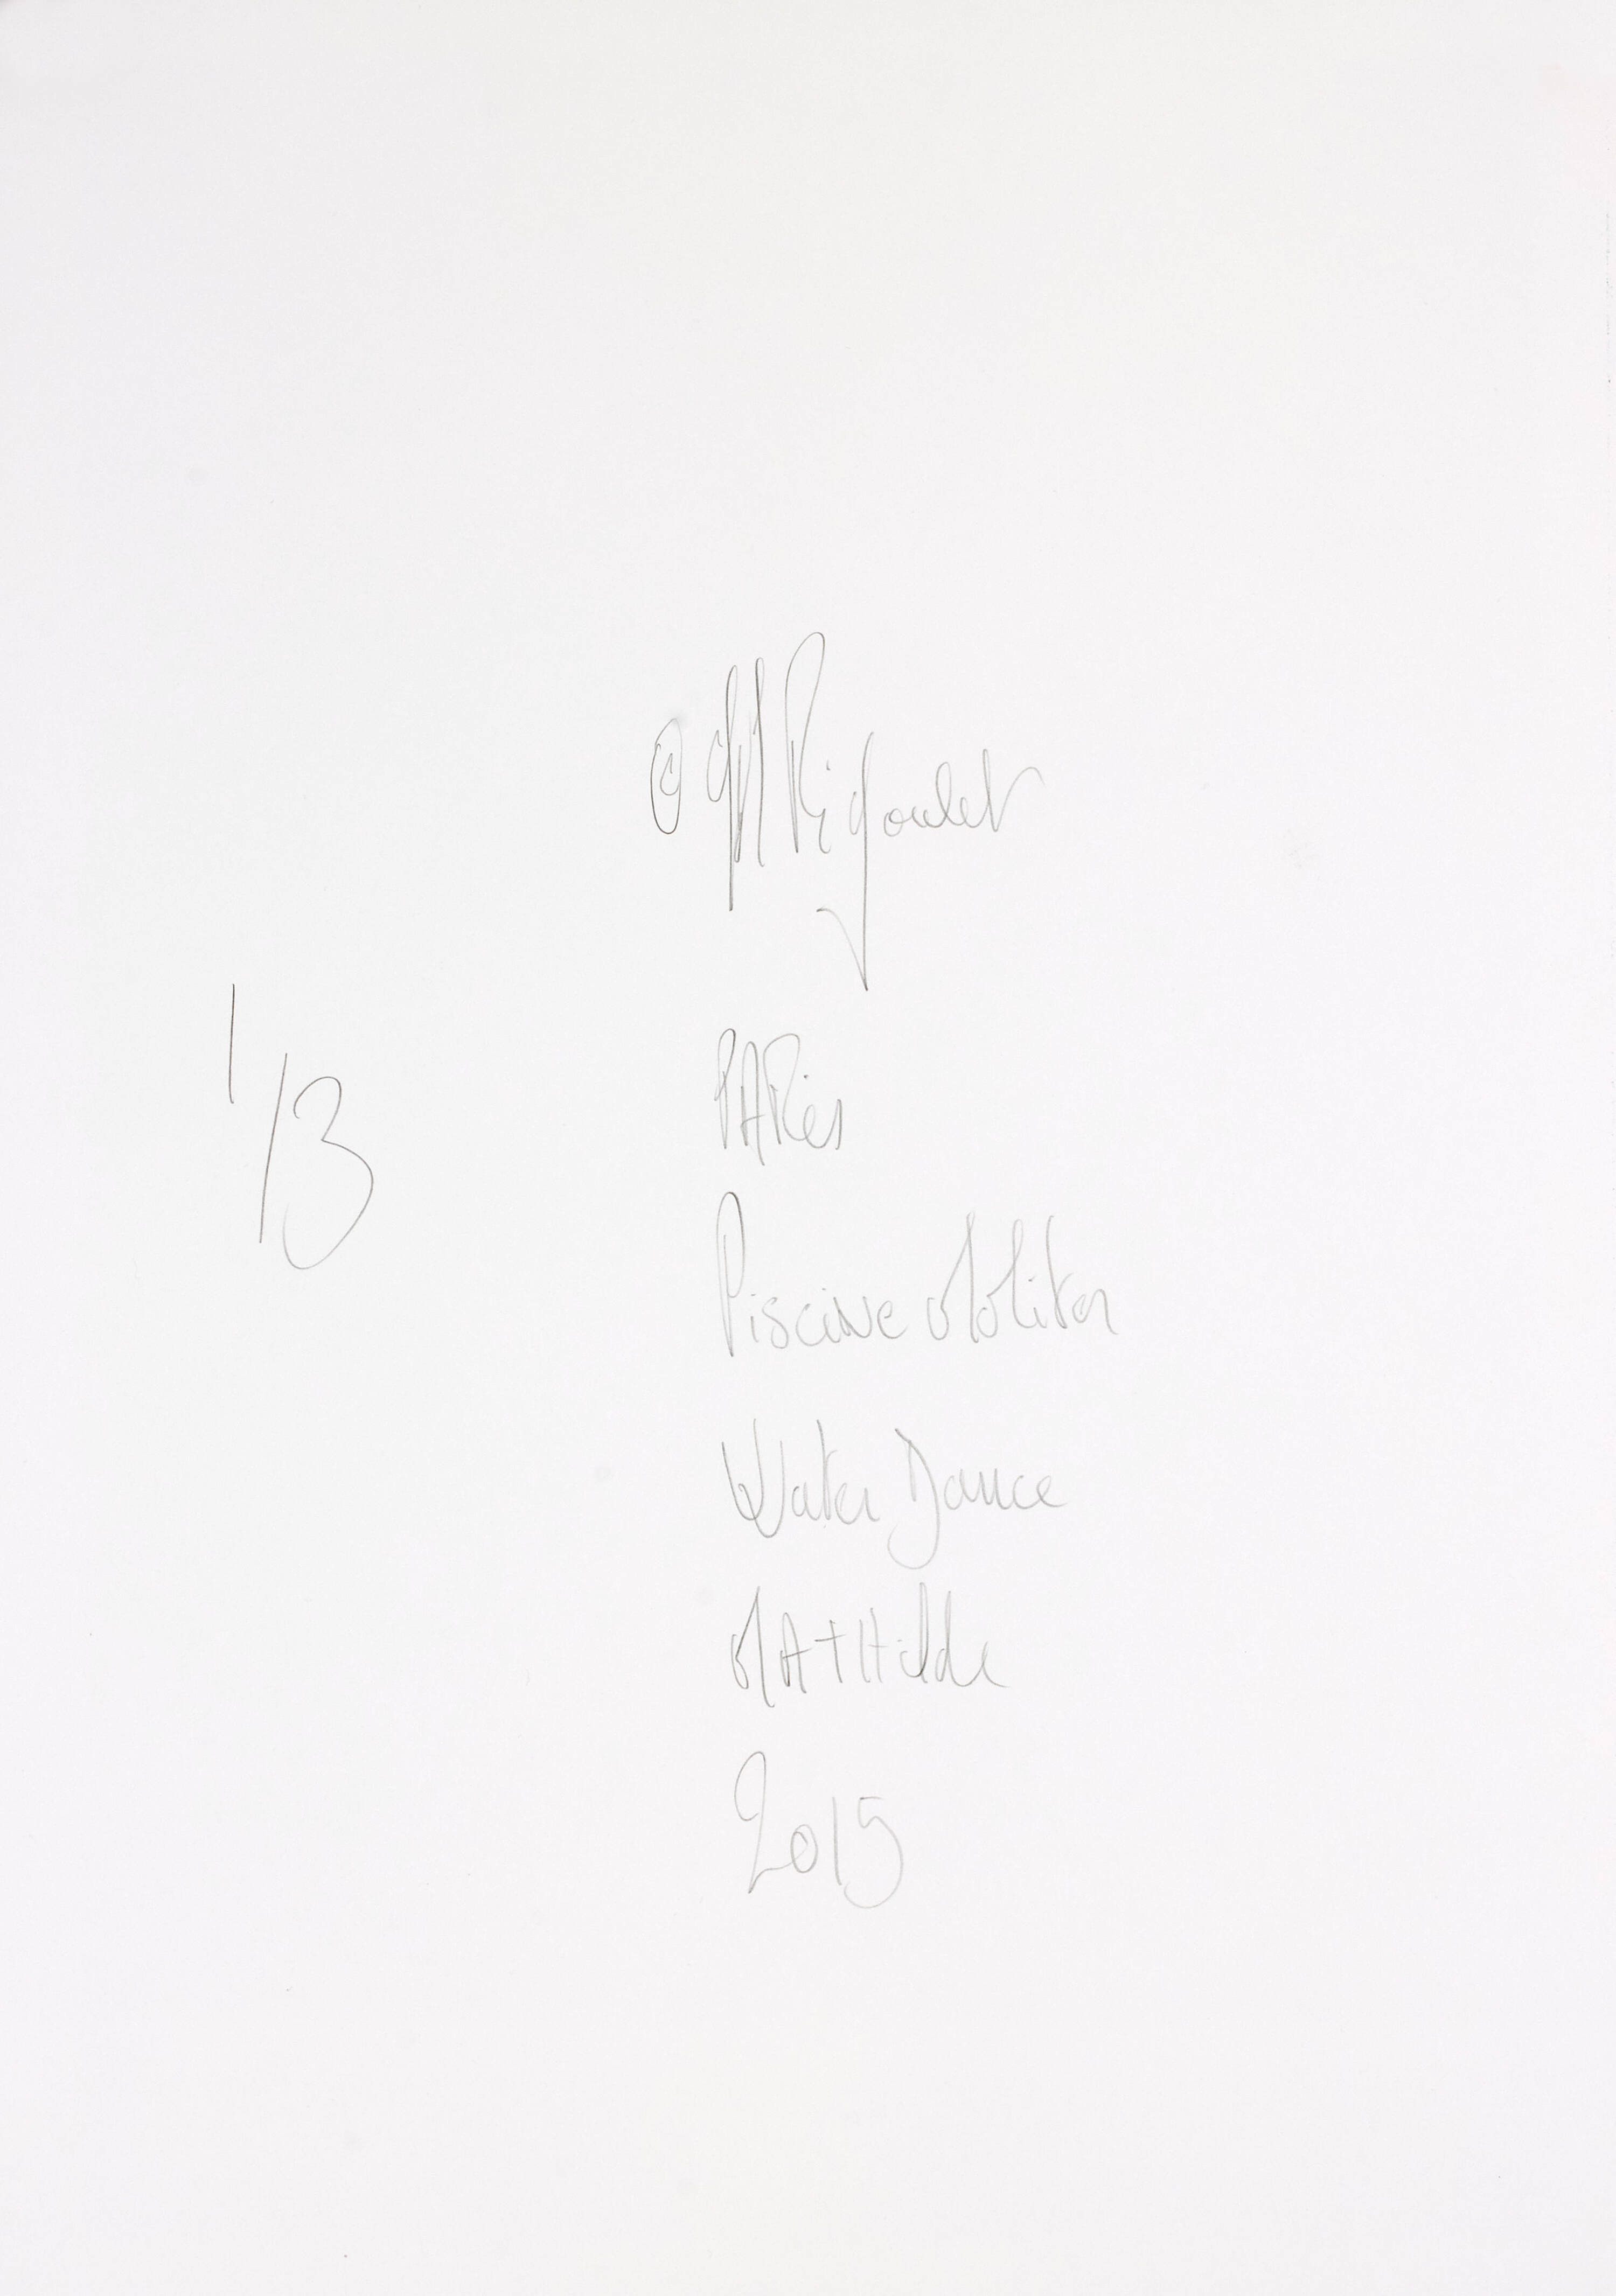 © M Rigoulet
1/3
PARis
Piscine Molitor
Water Dance
MATHilde
2015